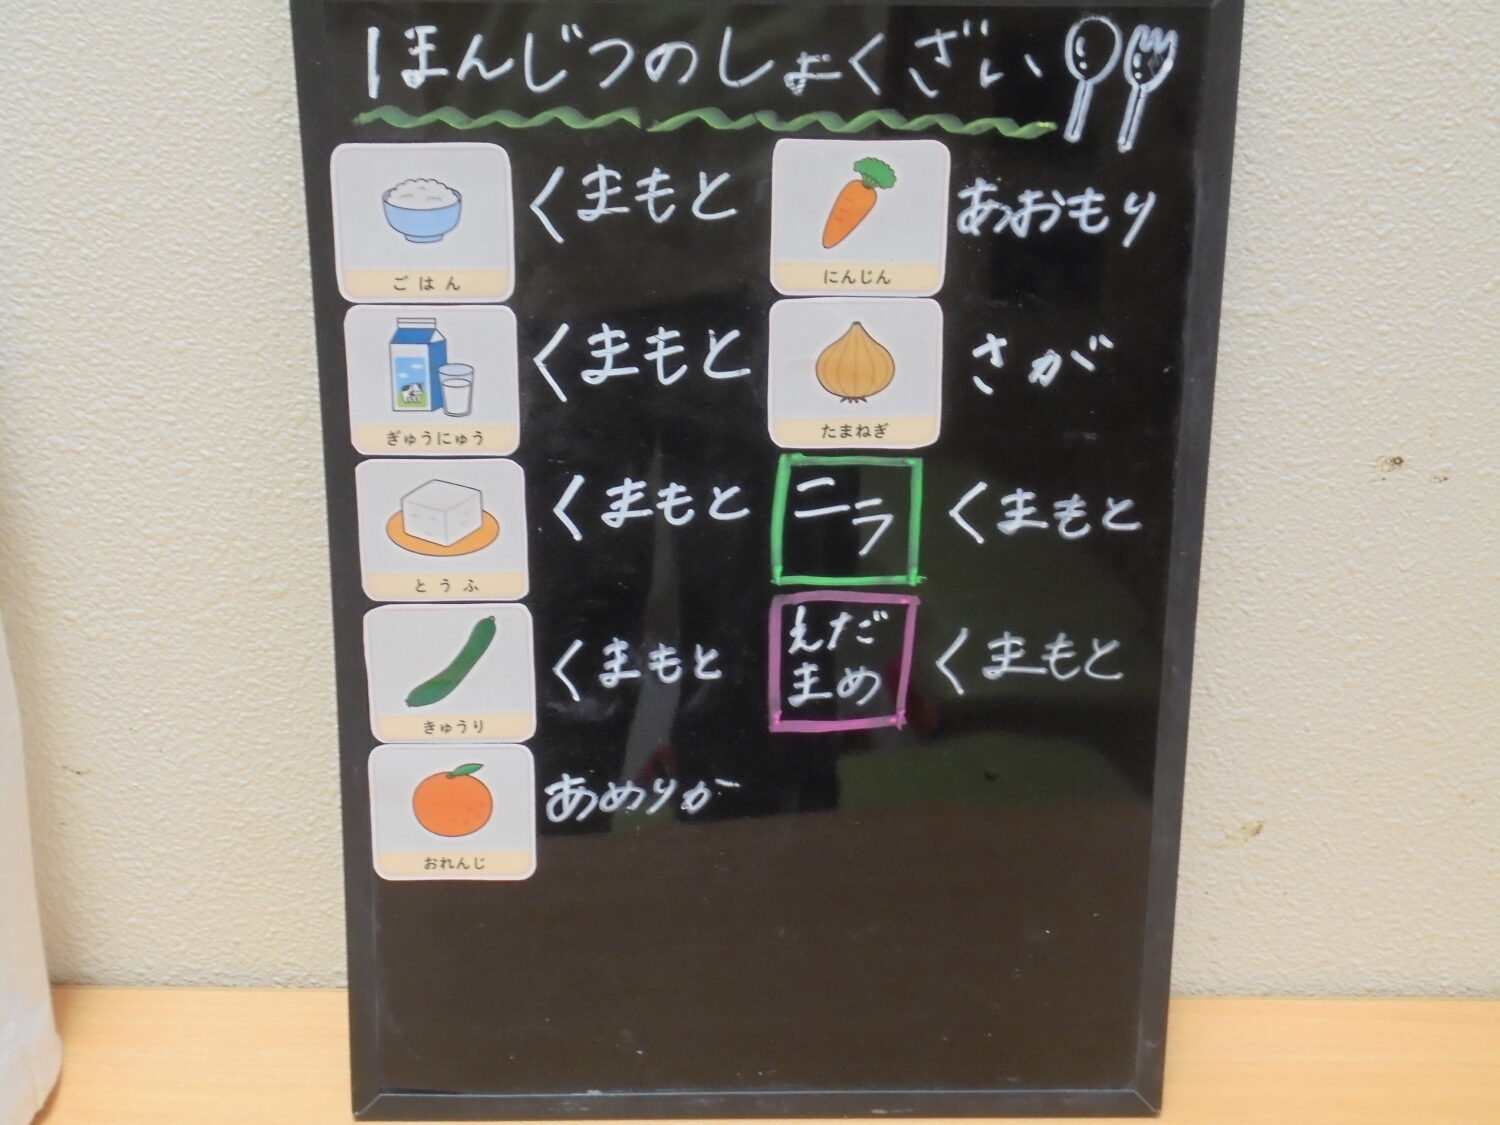 ほんじつのしょくざい
ごはん
くまもと
ぎゅうにゅう
くまもと
とうふ
くまもと
きゅうり
くまもと
おれんじ
あめりか
にんじん
あおもり
たまねぎ
さが
ニラ
くまもと
えだ
まめ
くまもと